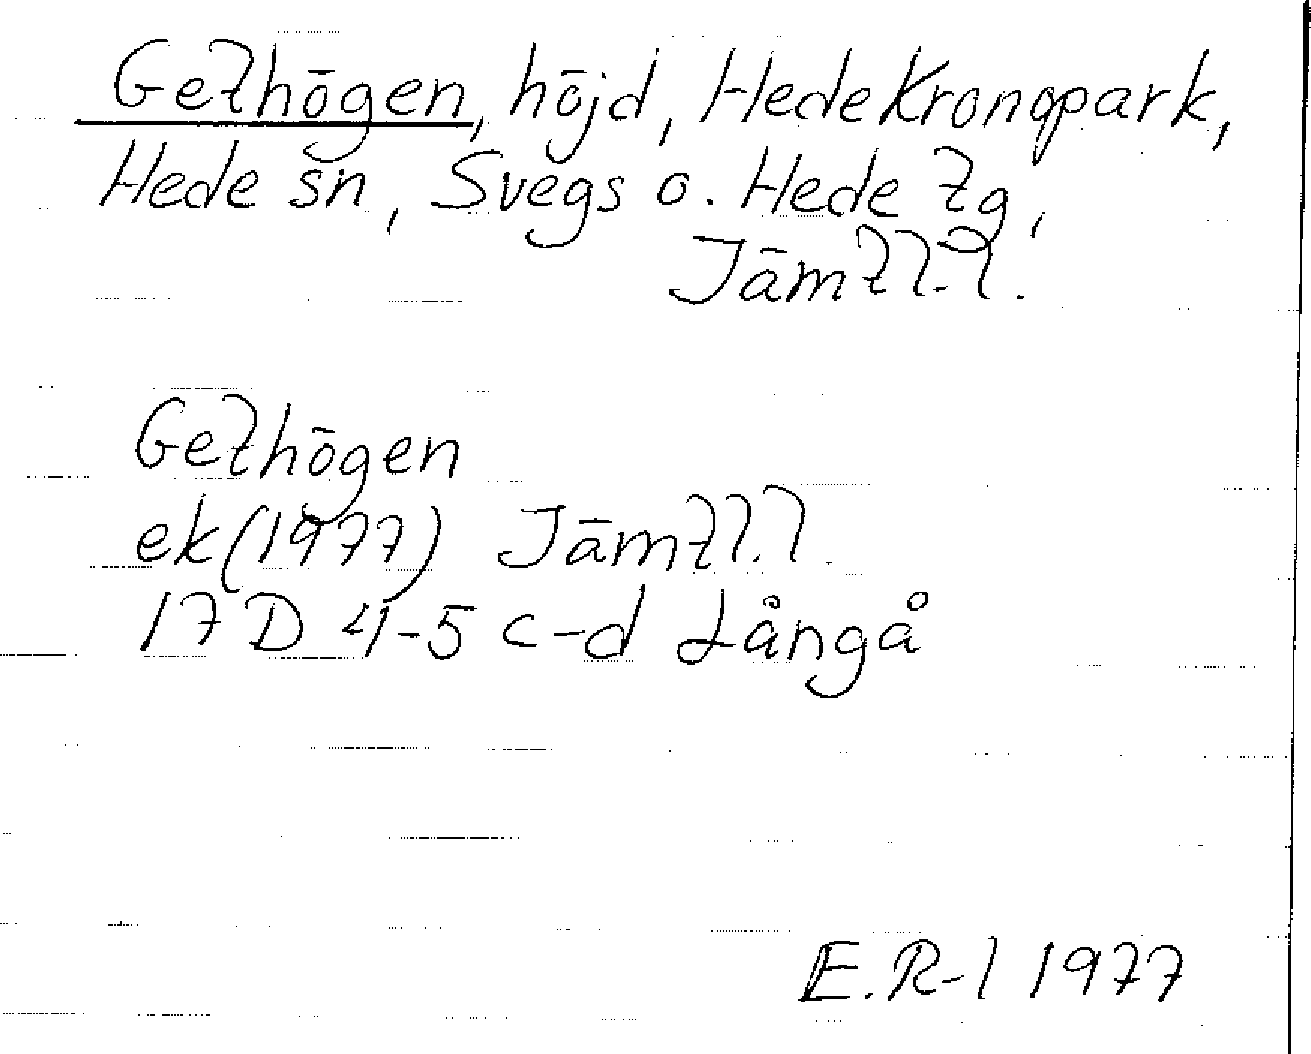 Gethögen, höjd, Hede Kronopark,
Hede sn, Svegs o. Hede tg,
Jämtl. l.
Gethögen
ek (1977) Jämtl. l
17 D 4-5 c-d Långå
E.R-l 1977